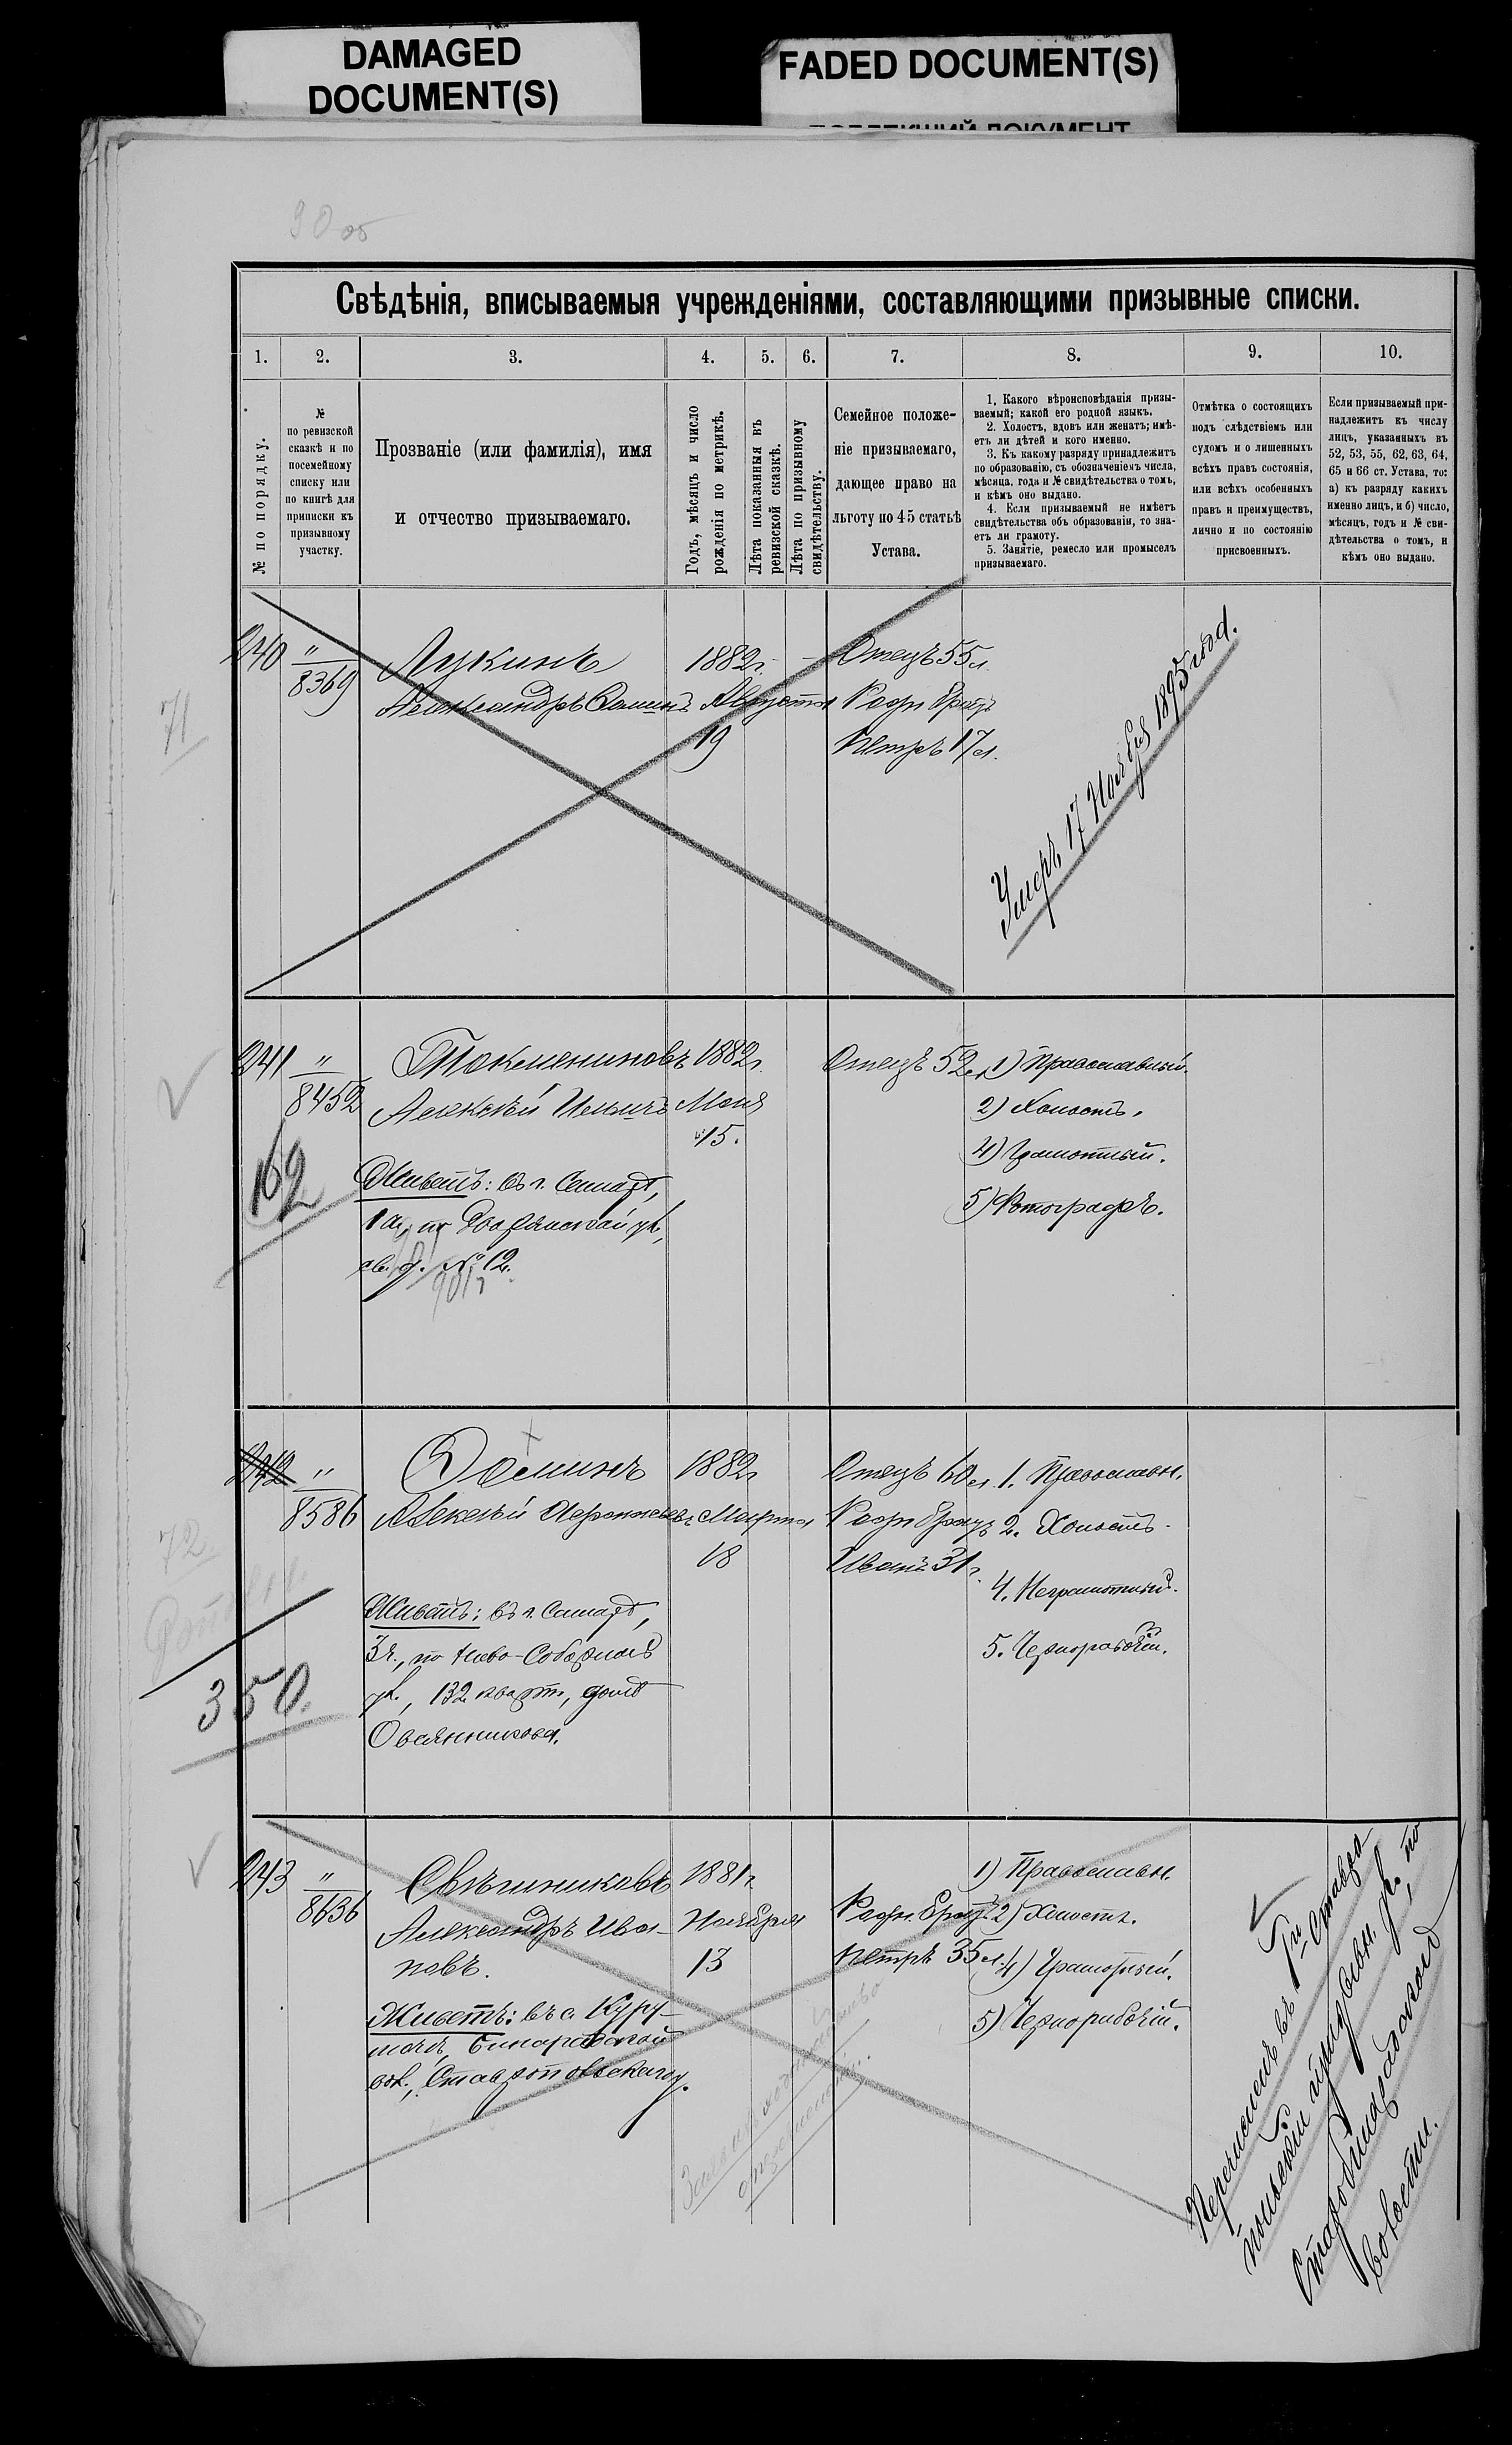 DAMAGED
DOCUMENT(S)
FADED DOCUMENT(S)
90 об
Свѣдѣнія, вписываемыя учрежденіями, составляющими призывные списки.
1. 2. 3. 4. 5. 6. 7. 8. 9. 10.
№ по порядку.
№
по ревизской
сказкѣ и по
посемейному
списку или
по книгѣ для
приписки къ
призывному
участку.
Прозваніе (или фамилія), имя
и отчество призываемаго.
Годъ, мѣсяцъ и число
рожденія по метрикѣ.
Лѣта показанныя въ
ревизской сказкѣ.
Лѣта по призывному
свидѣтельству.
Семейное положе-
ніе призываемаго,
дающее право на
льготу по 45 статьѣ
Устава.
1. Какого вѣроисповѣданія призы-
ваемый; какой его родной языкъ.
2. Холостъ, вдовъ или женатъ; имѣ-
етъ ли дѣтей и кого именно.
3. Къ какому разряду принадлежитъ
по образованію, съ обозначеніемъ числа,
мѣсяца, года и № свидѣтельства о томъ,
и кѣмъ оно выдано.
4. Если призываемый не имѣетъ
свидѣтельства объ образованіи, то зна-
етъ ли грамоту.
5. Занятіе, ремесло или промыселъ
призываемаго.
Отмѣтка о состоящихъ
подъ слѣдствіемъ или
судомъ и о лишенныхъ
всѣхъ правъ состоянія,
или всѣхъ особенныхъ
правъ и преимуществъ,
лично и по состоянію
присвоенныхъ.
Если призываемый при-
надлежитъ къ числу
лицъ, указанныхъ въ
52, 53, 55, 62, 63, 64,
65 и 66 ст. Устава, то:
а) къ разряду какихъ
именно лицъ, и б) число,
мѣсяцъ, годъ и № сви-
дѣтельства о томъ, и
кѣмъ оно выдано.
71
240 " 8369
Лукинъ
Александръ
1882 г.
Августа
19
Отецъ 55 л.
Родн братъ
Петръ 17 л.
Умеръ 17 Ноября 1895 год.
241 " 8452
162
Токмениновъ
Алексѣй Ильичъ
Живетъ: въ г. Самарѣ,
1 ч., по Дворянской ул.,
св. д. № 12.
1882 г.
Мая
15.
Отецъ 52 л.
1) Православный.
2) Холостъ.
4) Грамотный.
5) Фотографъ.
242 " 8586
72
350.
Доминъ
Алексѣй
Живетъ: въ г. Самарѣ,
3 ч., по Ново-Соборной
ул., 132 кварт, домъ
Овсянникова.
1882 г.
Марта
18
Отецъ 60 л
Родн братъ
Иванъ 31 г.
1. Православн.
2. Холостъ.
4. Неграмотный.
5. Чернорабочій.
243 " 8636
Свѣчниковъ
Александръ Ива-
новъ.
Живетъ: въ с. Куру-
мочѣ,
вол., Ставропольскаго у.
1881 г.
Ноября
13
Родн. братъ
Петръ 35 л.
1) Православн.
2) Холостъ.
4) Грамотный.
5) Чернорабочій.
Перечисленъ въ Ставро-
польскій уѣздъ, по
волости.